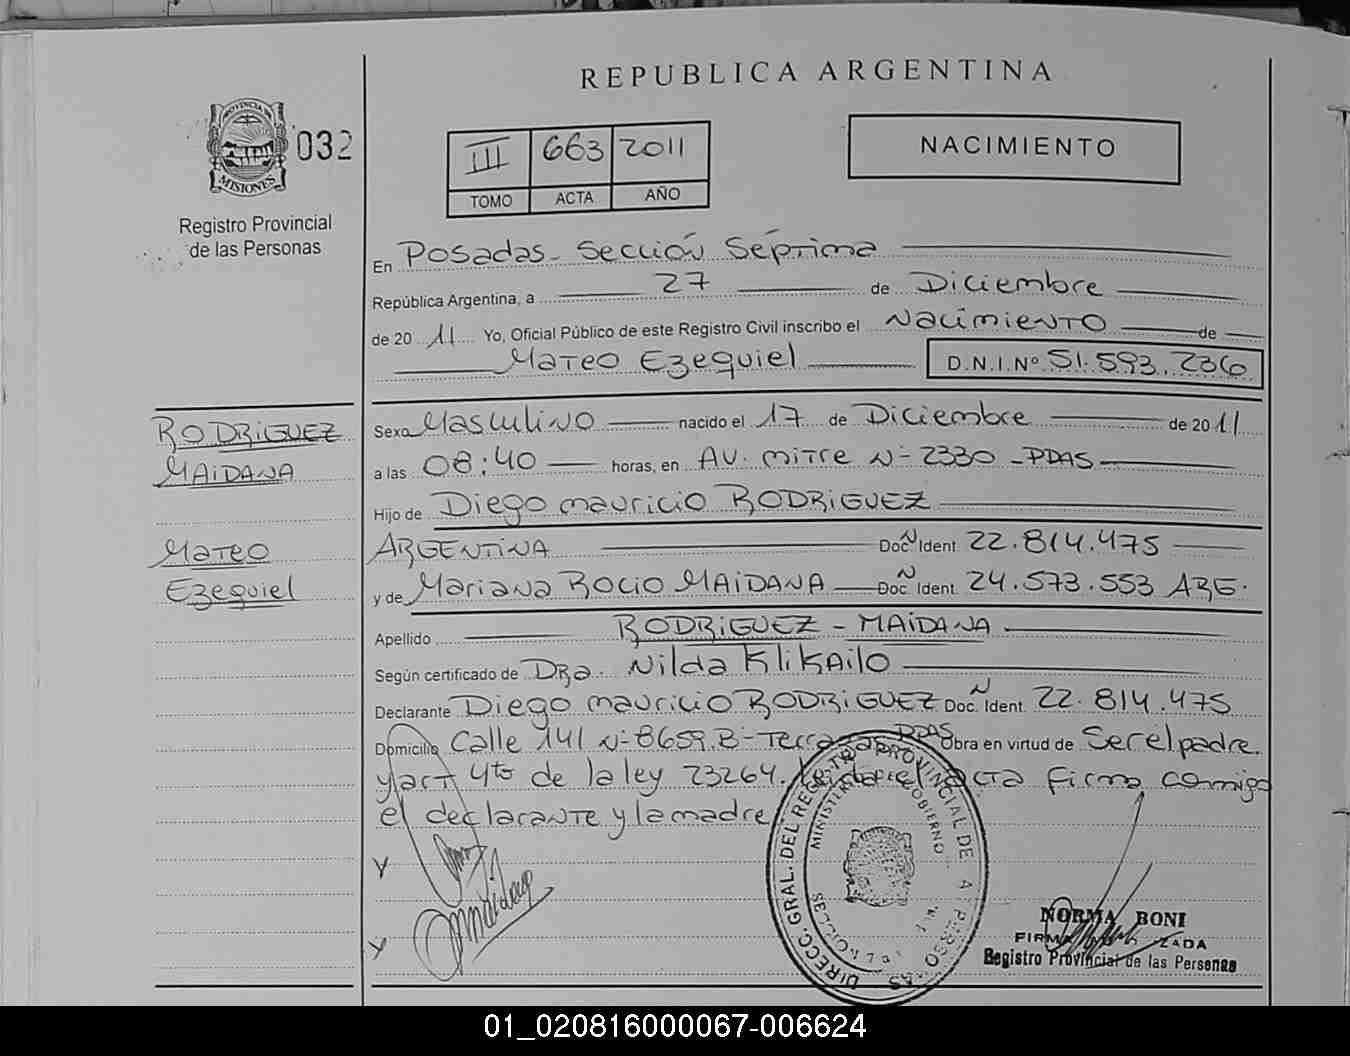 REPUBLICA ARGENTINA
PROVINCIA DE
MISIONES
032
Registro Provincial
de las Personas
III 663 2011
TOMO ACTA AÑO
NACIMIENTO
En Posadas - Sección Séptima
República Argentina, a 27 de Diciembre
de 20 11 Yo, Oficial Público de este Registro Civil inscribo el Nacimiento de
Mateo Ezequiel D.N.I.Nº 51.593.236
RODRIGUEZ
MAIDANA
Mateo
Ezequiel
Sexo Masculino nacido el 17 de Diciembre de 2011
a las 08:40 horas, en AV. mitre N- 2330 - PDAS
Hijo de Diego mauricio RODRIGUEZ
ARGENTINA Doc. N Ident. 22.814.475
y de Mariana ROCIO MAIDANA Doc. N Ident. 24.573.553 ARG.
Apellido RODRIGUEZ - MAIDANA
Según certificado de DRa. Nilda KliKAilo
Declarante Diego mauricio RODRIGUEZ Doc. N Ident. 22.814.475
Domicilio Calle 141 N- 8659. B- PDAS Obra en virtud de Ser el padre.
y art 4to de la ley 23264. acta firma comigo
el declarante y la madre
DIRECC. GRAL. DEL REGISTRO PROVINCIAL DE
MINISTERIO GOBIERNO
NORMA BONI
Registro Provincial de las Personas
01_020816000067-006624